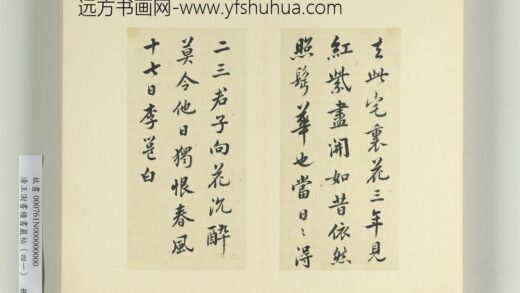 远方书画网-www.yfshuhua.com
去此宅裏花三年見
紅紫盡開如昔依然
照鬢華也當日〻得
二三君子向花沉醉
莫令他日獨恨春風
十七日李邕白
故書000761N000000000
清王澍書積書巖帖(四一)